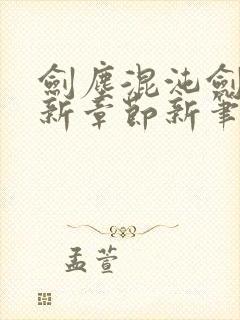 劍塵混沌劍
新章節新筆
孟萱